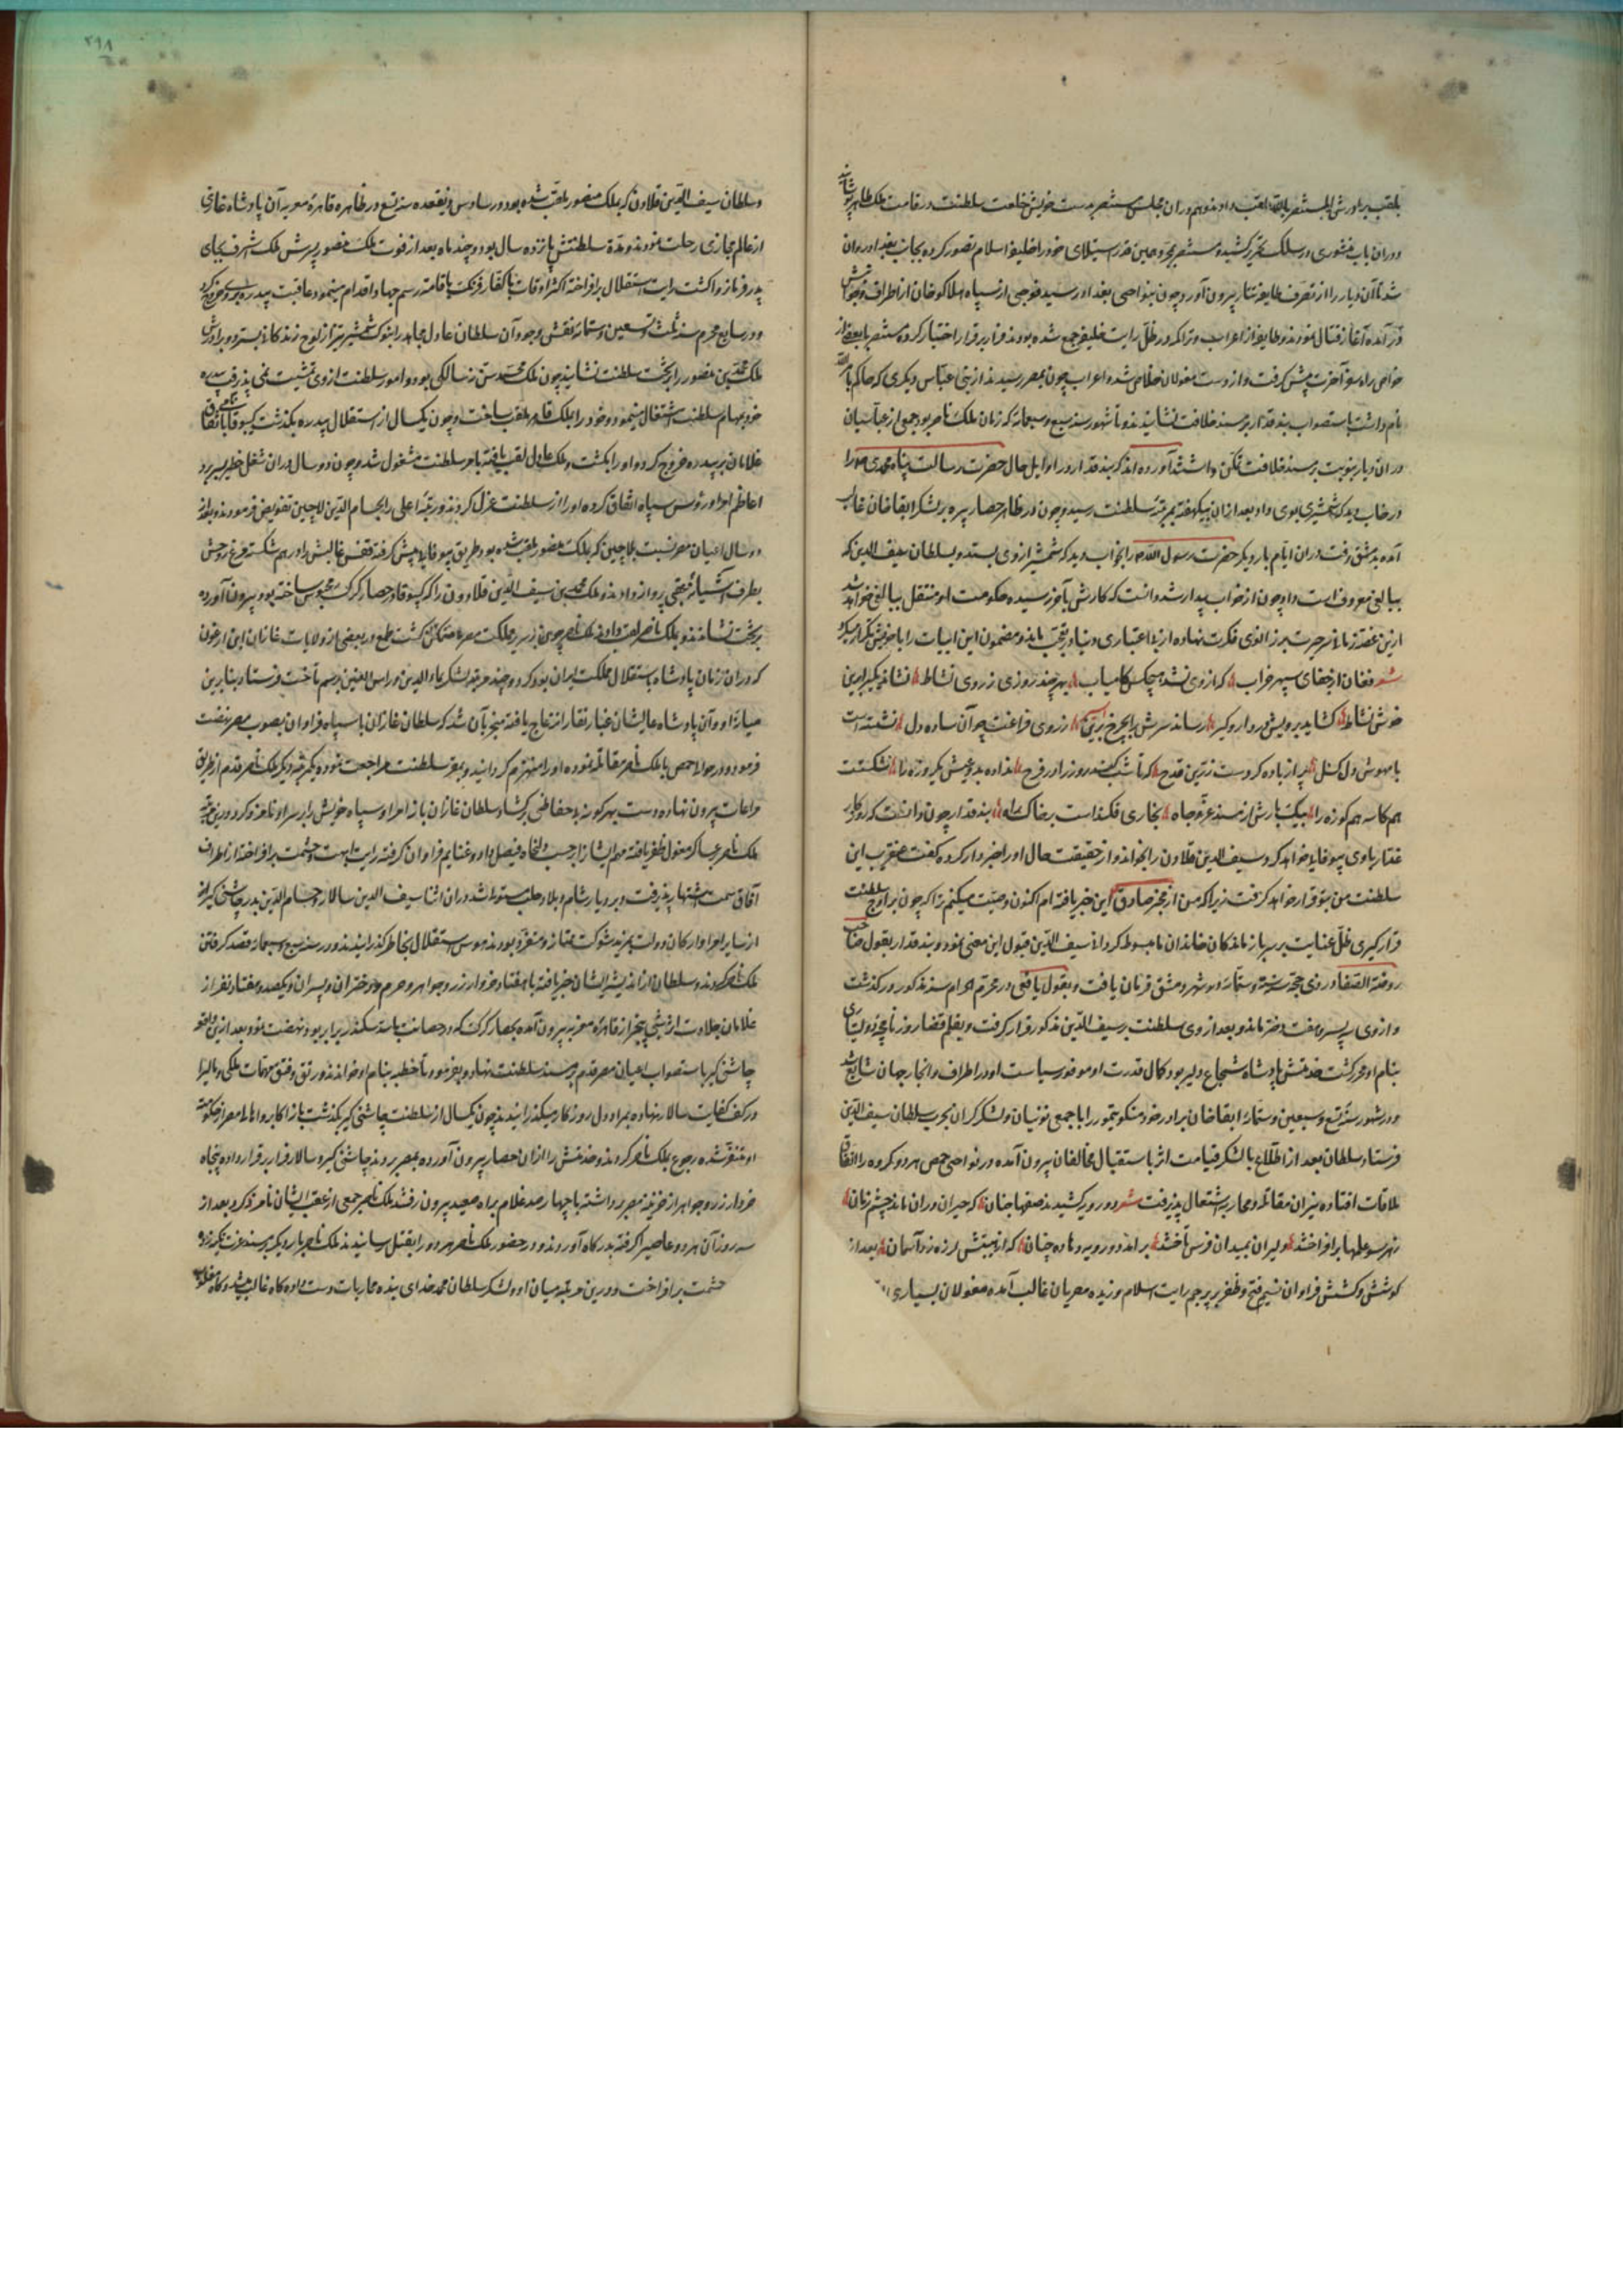 بلقب برادرش المستنصر بالله لقب دادند و هم در آن مجلس مستنصر بدست خویش خلعت سلطنت در قامت ملک ظاهر پوشانید
و در آن باب منشوری در سلک تحریر کشیده مستنصر بمجرد همین قدر استیلای خود را خلیفه اسلام تصور کرده بجانب بغداد روان
شد تا آن دیار را از تصرف طایفه تتار بیرون آورد و چون بنواحی بغداد رسید فوجی از سپاه هلاکو خان از اطراف و جوانبش
در آمده آغاز قتال نمودند و طایفه از اعراب و تراکمه در ظل رایت خلیفه جمع شده بودند فرار بر قرار اختیار کرده مستنصر با بعضی از
خواص راه سفر آخرت پیش گرفت و از دست مغولان خلاص شده اعراب چون بمصر رسیدند از بنی عباس دیگری که حاکم بامر الله
نام داشت باستصواب بندقدار بر مسند خلافت نشانیدند و تا شهور سنه سبع و سبعمائه که زمان ملک ناصر بود جمعی از عباسیان
در آن دیار بنوبت بر مسند خلافت تمکن داشتند آورده اند که بندقدار در اوایل حال حضرت رسالت پناه محمدی را
در خواب دید که شمشیری بوی داد و بعد از آن بیکهفته بمرتبه سلطنت رسید و چون در ظاهر حصار بیره بر لشکر ابقا خان غالب
آمده بدمشق رفت در آن ایام بار دیگر حضرت رسول الله را بخواب دید که شمشیر از وی بستد و بسلطان سیف الدین که
بیالفی معروف است داد چون از خواب بیدار شد دانست که کارش بآخر رسیده حکومت او منتقل بیالفی خواهد شد
ازین غصه زمانی سر حیرت بر زانوی فکرت نهاده از بی اعتباری دنیا در تعجب بماند و مضمون این ابیات را با خویش تکرار میکرد
شعر فغان از جفای سپهر خراب که از وی نشد هیچکس کامیاب بهر چند روزی ز روی نشاط نشاند یکی را برین
خوش نشاط کشاید برویش در دار و گیر رساند سرش را بچرخ برین ز روی فراغت چو آن ساده دل نشسته است
با مهوش دل گسل پر از باده کرد دست زرین قدح که تا شب کند روز را در فرح نداده بدو عیش یکروزه را شکست
هم کاسه هم کوزه را بیک بارش از مسند عز و جاه بخاری فکنداست بر خاک راه بندقدار چون دانست که روزگار
غدار با وی بیوفایی خواهد کرد سیف الدین قلاون را بخواند و از حقیقت حال او را خبردار کرده گفت عنقریب این
سلطنت من بتو قرار خواهد گرفت زیرا که من از مخبر صادق این خبر یافته ام اکنون وصیت میکنم ترا که چون بر اوج سلطنت
قرار گیری ظل عنایت بر سر باز ماندگان خاندان ما مبسوط گردانی سیف الدین قبول این معنی نمود و بندقدار بقول صاحب
روضة الصفا در ذی حجه سنه ستمائه در شهر دمشق فرمان یافت و بقول یافعی در محرم الحرام سنه مذکور درگذشت
و از وی پسر و هفت دختر ماند و بعد از وی سلطنت بر سیف الدین مذکور قرار گرفت و بقلم قضا روزنامچه دولتیاری
بنام او محرر گشت خدمتش پادشاه شجاع و دلیر بود کمال قدرت او و وفور سیاست او در اطراف و انحاء جهان شایع شد
و در شهور سنه تسع و سبعین و ستمائه ابقا خان برادر خود منکو تیمور را با جمعی نوینیان و لشکر گران بحرب سلطان سیف الدین
فرستاد سلطان بعد از اطلاع با لشکر قیامت اثر باستقبال مخالفان بیرون آمده در نواحی حمص هر دو گروه را اتفاق
ملاقات افتاده نیران مقاتله و محاربه اشتعال پذیرفت شعر دو رویه کشیدند صفها چنان که حیران در آن ماند چشم زمان
ز هر سو علمها برافراختند دلیران بمیدان فرس تاختند بر آمد دو رویه دهاده چنان که از هیبتش لرزه زد آسمان بعد از
کوشش و کشش فراوان نسیم فتح و ظفر بر پرچم رایت اسلام وزیده مصریان غالب آمده مغولان بسیاری
و سلطان سیف الدین قلاون که بملک منصور ملقب شده بود در سادس ذیقعده سنه تسع در ظاهر قاهره معزیه آن پادشاه غازی
از عالم مجازی رحلت نمود و مدة سلطنتش یازده سال بود و چند ماه بعد از فوت ملک منصور پسرش ملک اشرف بجای
پدر فرمانروا گشت رایت استقلال برافراخته اکثر اوقات با کفار فرنگ باقامت رسم جهاد اقدام مینمود عاقبت بیدره بر وی خروج کرد
و در سابع محرم سنه ثلث و تسعین و ستمائه نقش وجود آن سلطان عادل مجاهد را بنوک شمشیر تیز از لوح زندگانی بسترد و برادرش
ملک محمد بن منصور را بر تخت سلطنت نشانید چون ملک محمد سن نه سالگی بود و امور سلطنت از وی تمشیت نمی پذیرفت بیدره
خود بمهام سلطنت اشتغال مینمود و خود را ملک قاهر لقب ساخت و چون یکسال از استقلال بیدره بگذشت کیبوقا باتفاق
غلامان بر بیدره خروج کرد و او را بکشت و ملک عادل لقب یافته بامر سلطنت مشغول شد و چون دو سال در آن شغل خطیر بسر برد
اعاظم امرا و رؤس سپاه اتفاق کرده او را از سلطنت عزل کردند و رتبه اعلی را بحسام الدین لاچین تفویض فرمودند و بعد از
دو سال اعیان مصر نسبت بلاچین که بملک منصور ملقب شده بود طریق بیوفایی پیش گرفته قفس قالبش را درهم شکسته مرغ روحش
بطرف آشیانه عقبی پرواز دادند و ملک محمد بن سیف الدین قلاوون را که کیبوقا در حصار کرک محبوس ساخته بود بیرون آورده
بر تخت نشاندند و بملک ناصر لقب دادند ملک ناصر چون بر سریر مملکت مصر متمکن گشت طمع در بعضی از ولایات غازان ابن ارغون
که در آن زمان پادشاه باستقلال مملکت ایران بود کرد و چند مرتبه لشکر بماردین و راس العین برسم تاخت فرستاد بنابرین
میان او و آن پادشاه عالیشان غبار نقار ارتفاع یافته منجر بآن شد که سلطان غازان با سپاه فراوان بصوب مصر نهضت
فرمود و در حوالی حمص با ملک ناصر مقاتله نموده او را منهزم گردانید و بمقر سلطنت مراجعت نموده یکمرتبه دیگر ملک ناصر قدم از طریق
مراعات بیرون نهاده دست بهر گونه بی حفاظی بر گشاد سلطان غازان باز امرا و سپاه خویش را بر سر او نامزد کرد و درین مرتبه
ملک ناصر بر عساکر مغول ظفر یافته مهم ایشانرا بر حسب دلخواه فیصل داد و غنایم فراوان گرفته رایت ابهت و حشمت برافراخته از اطراف
آفاق سمت اشتهار پذیرفت و بر دیار شام و بلاد حلب مستولی شد در آن اثنا سیف الدین سالار و حسام الدین بدر چاشنی گیر که
از سایر امرا و ارکان دولت بمزید شوکت ممتاز و متفرد بودند هوس استقلال بخاطر گذرانیدند و در سنه سبع و سبعمائه قصد گرفتن
ملک ناصر کردند و سلطان از اندیشه ایشان خبر یافته با هفتاد خروار زر و جواهر و حرم و دختران و پسران و یکصد و هفتاد نفر از
غلامان جلادت اثر شبی بیخبر از قاهره معزیه بیرون آمده بحصار کرک که در حصانت با سد سکندر برابر بود نهضت نمود بعد ازین واقعه
چاشنی گیر باستصواب اعیان مصر قدم بر مسند سلطنت نهاد و بفرمود تا خطبه بنام او خواندند و رتق و فتق مهمات ملکی و مالی را
در کف کفایت سالار نهاده بمراد دل روزگار میگذرانید و چون یکسال از سلطنت چاشنی گیر بگذشت باز اکابر و اهالی مصر از حکومت
او متنفر شده رجوع بملک ناصر کردند و خدمتش را از آن حصار بیرون آورده بمصر بردند چاشنی گیر و سالار فرار بر قرار داده پنجاه
خروار زر و جواهر از خزینه مصر برداشته با چهار صد غلام براه صعید بیرون رفتند ملک ناصر جمعی از عقب ایشان نامزد کرد بعد از
سه روز آن هر دو عاصی را گرفته بدرگاه آوردند و در حضور ملک ناصر هر دو را بقتل رسانیدند ملک ناصر بار دیگر بر مسند عزت تکیه زده
حشمت برافراخت و درین مرتبه میان او و لشکر سلطان محمد خدای بنده محاربات دست داده گاه غالب میشد و گاه مغلوب